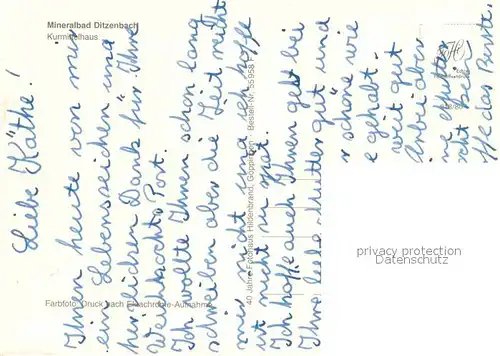 Mineralbad Ditzenbach
Kurmittelhaus
Liebe Käthe!
Ihnen heute von mir
ein Lebenszeichen und
herzlichen Dank für Ihre
Weihnachts Post.
Ich wollte Ihnen schon lang
schreiben aber die Zeit reicht
mir nicht na ich hoffe
ist nicht zu spät.
Ich hoffe auch Ihnen geht bei
Ihre liebe Mutter gut und
schöne wie
gehabt.
weit gut
Arbeit aber
ne
cht bei
ffe das
Farbfoto: Druck nach Ektachrome-Aufnahme
40 Jahre Fotohaus Hildenbrand, Göppingen Bestell-Nr. 55958
privacy protection
Datenschutz